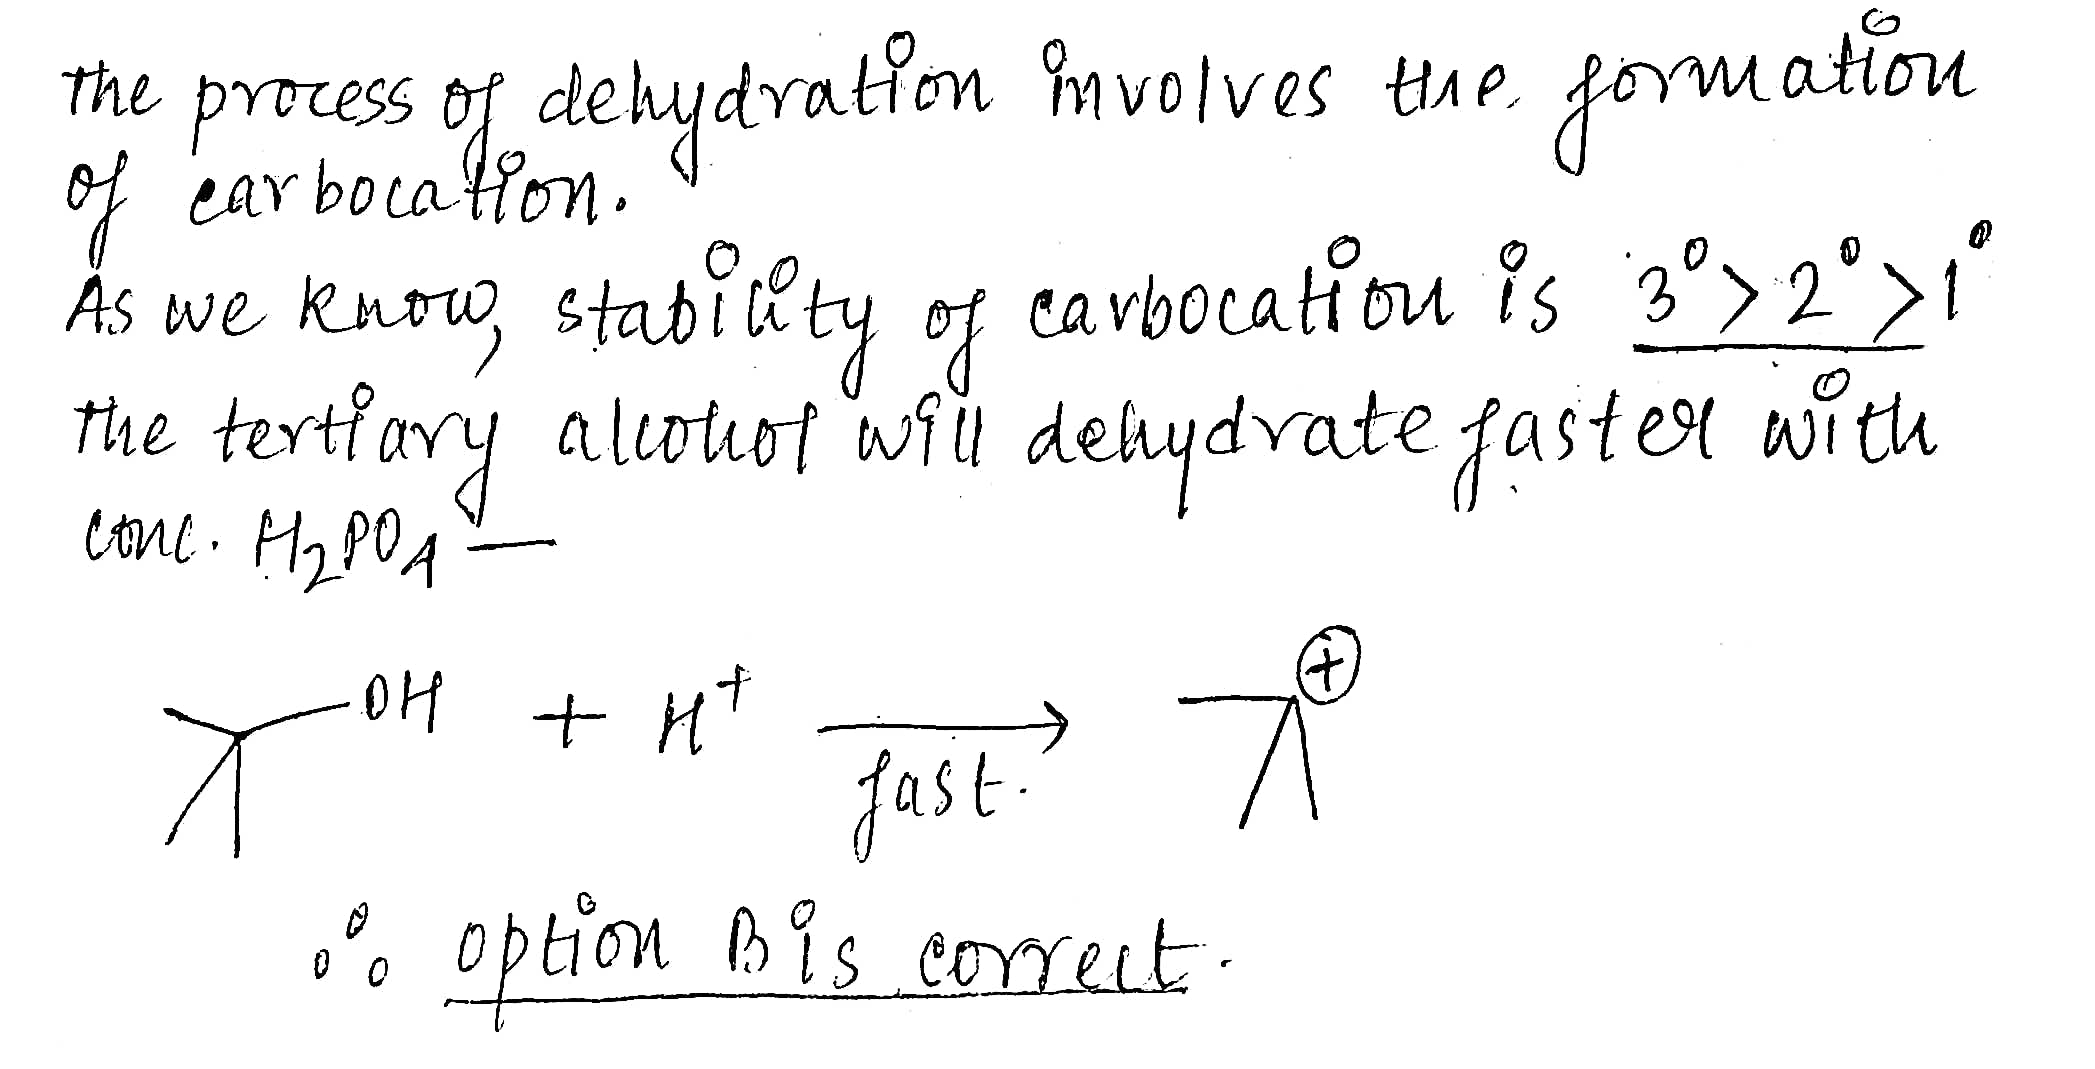 The process of dehydration involves the formation
of carbocation.
As we know, stability of carbocation is 3° > 2° > 1°
The tertiary alcohol will dehydrate faster with
conc. H₂PO₄ —
OH + H⁺ ⟶ ⊕
fast.
∴ option B is correct.